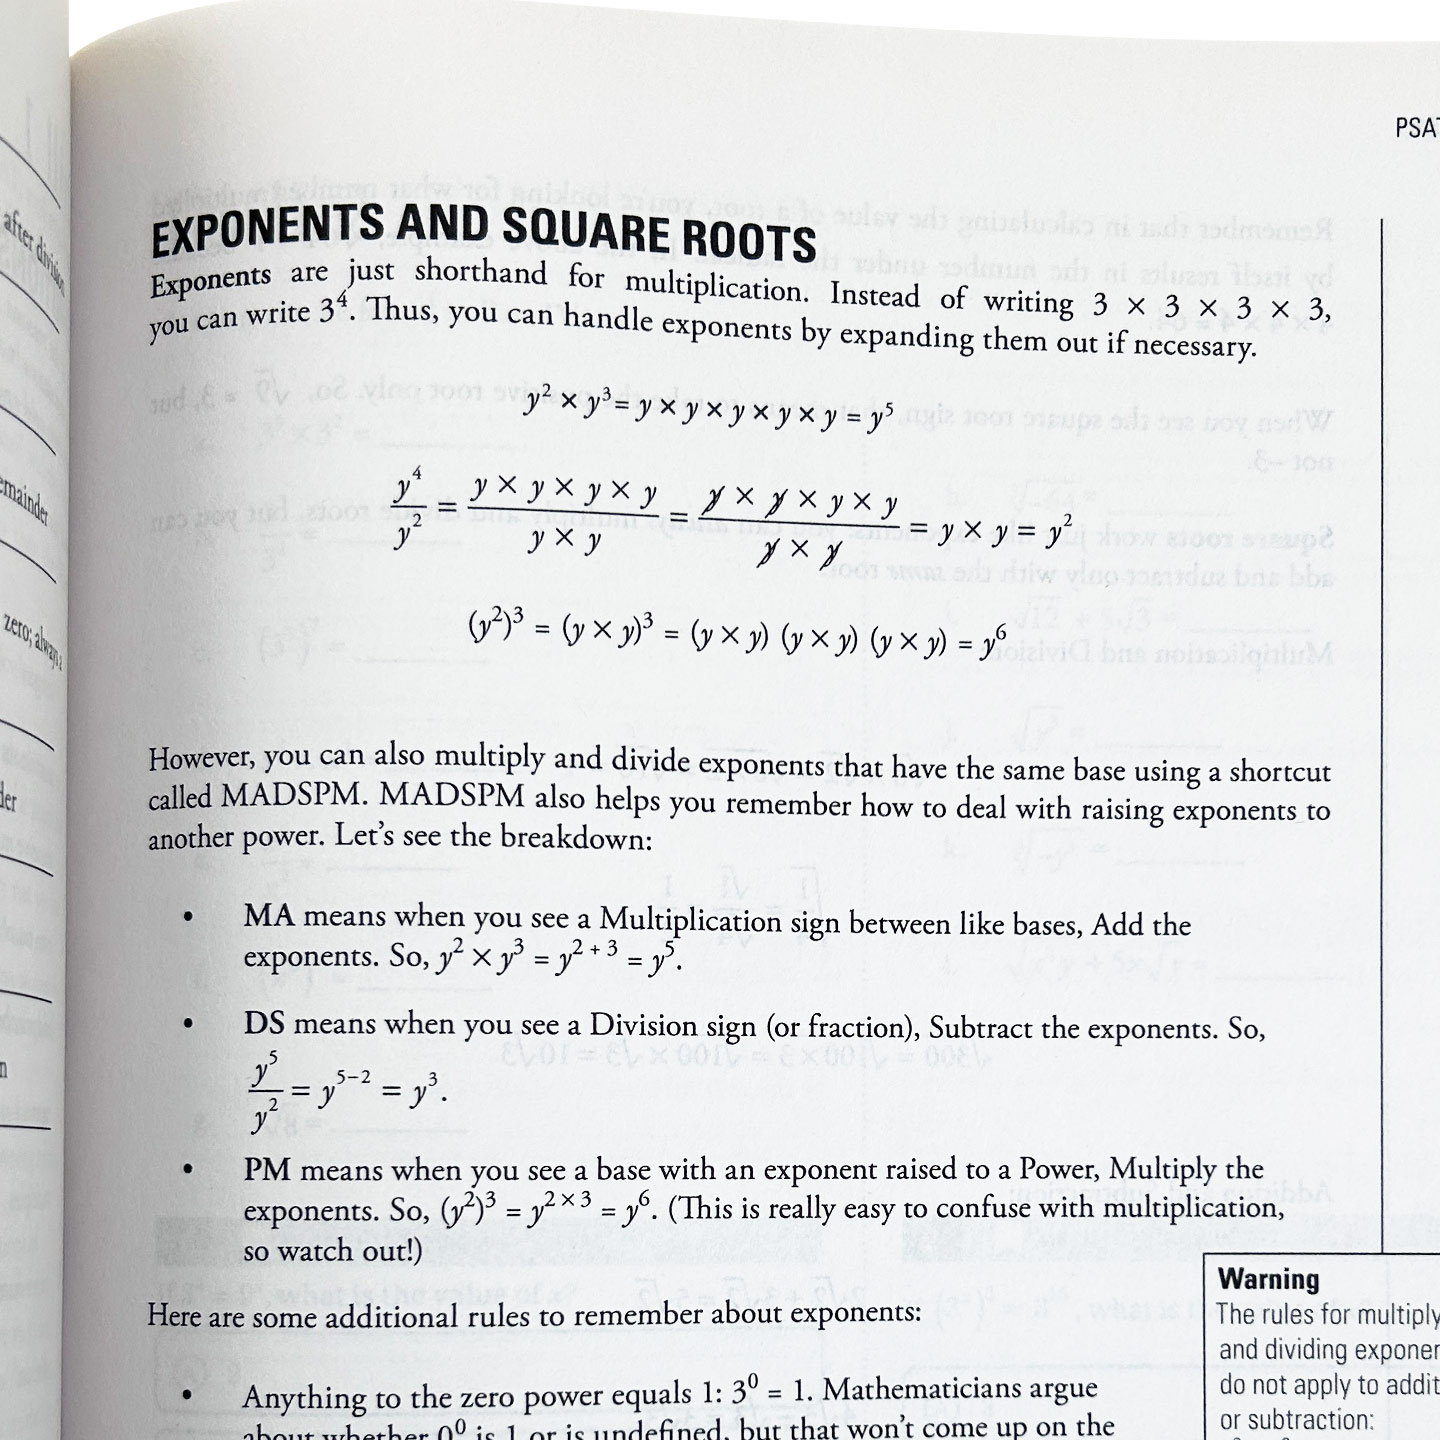 after division
emainder
zero; always
PSAT
EXPONENTS AND SQUARE ROOTS
Exponents are just shorthand for multiplication. Instead of writing 3 × 3 × 3 × 3,
you can write 3⁴. Thus, you can handle exponents by expanding them out if necessary.
y² × y³ = y × y × y × y × y = y⁵
y⁴/y² = (y × y × y × y)/(y × y) = (y̸ × y̸ × y × y)/(y̸ × y̸) = y × y = y²
(y²)³ = (y × y)³ = (y × y) (y × y) (y × y) = y⁶
However, you can also multiply and divide exponents that have the same base using a shortcut
called MADSPM. MADSPM also helps you remember how to deal with raising exponents to
another power. Let's see the breakdown:
• MA means when you see a Multiplication sign between like bases, Add the
exponents. So, y² × y³ = y²⁺³ = y⁵.
• DS means when you see a Division sign (or fraction), Subtract the exponents. So,
y⁵/y² = y⁵⁻² = y³.
• PM means when you see a base with an exponent raised to a Power, Multiply the
exponents. So, (y²)³ = y²ˣ³ = y⁶. (This is really easy to confuse with multiplication,
so watch out!)
Here are some additional rules to remember about exponents:
• Anything to the zero power equals 1: 3⁰ = 1. Mathematicians argue
about whether 0⁰ is 1 or is undefined, but that won't come up on the
Warning
The rules for multiply
and dividing exponen
do not apply to addit
or subtraction: